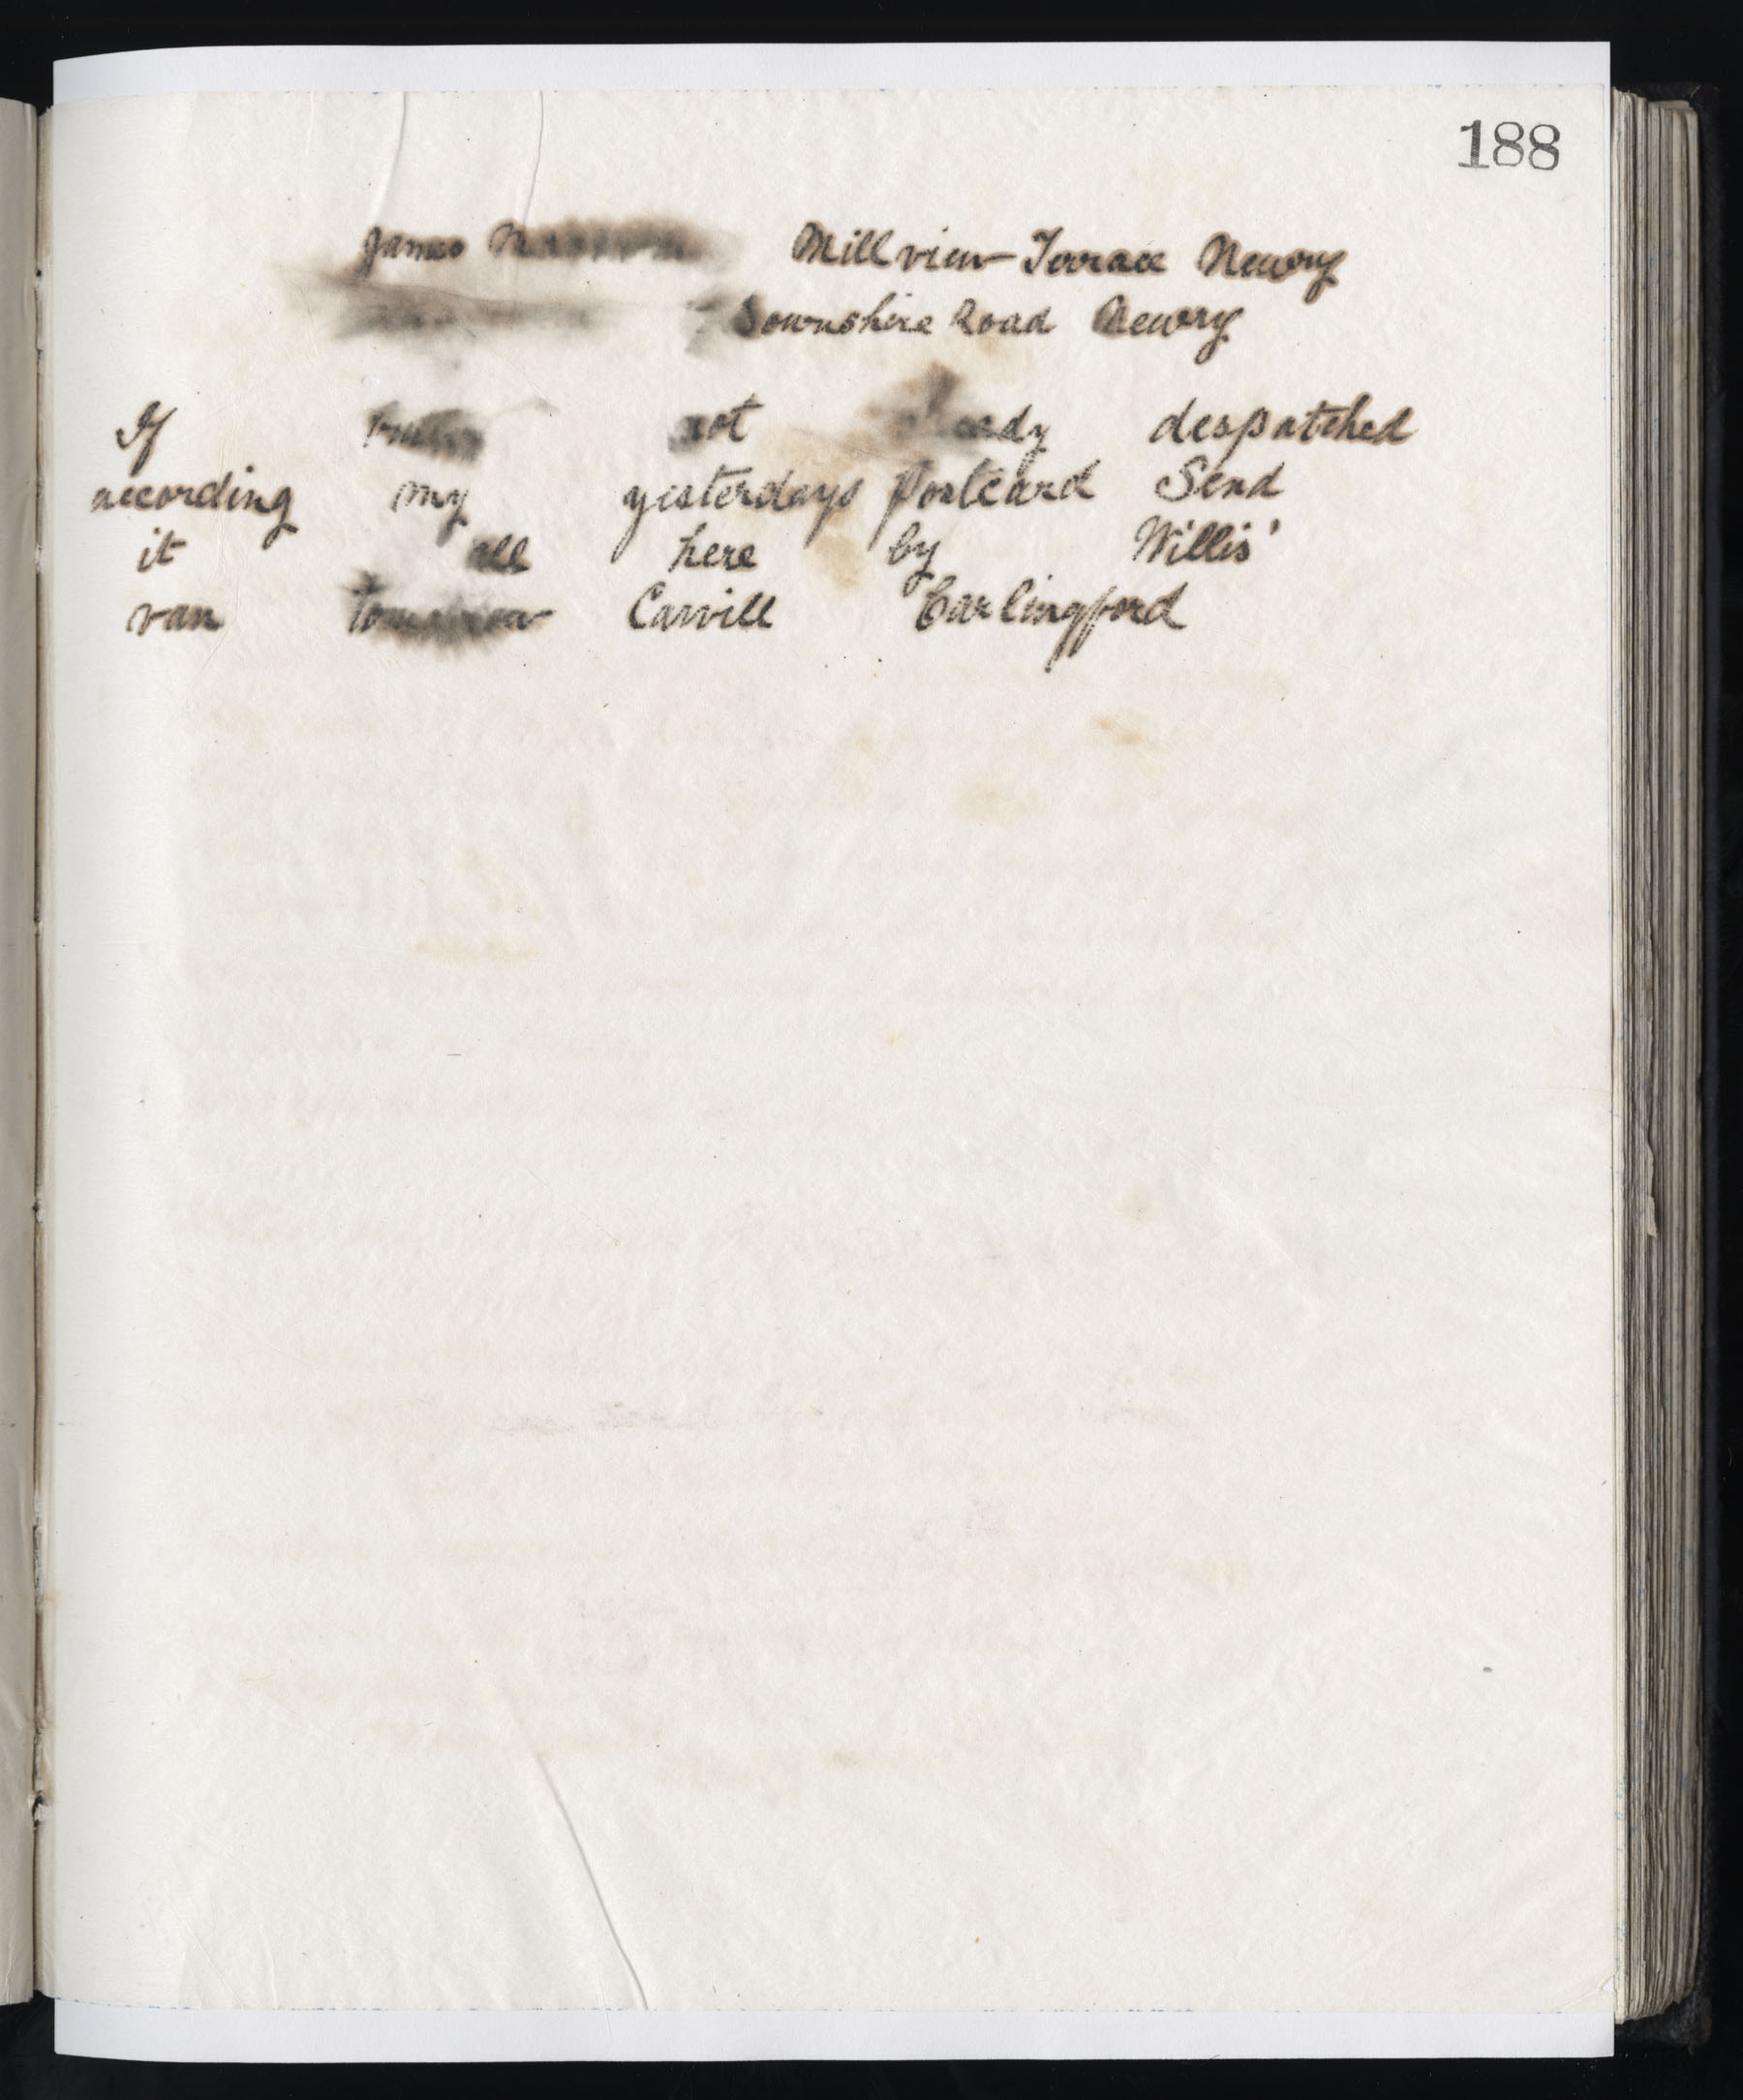 188
James Millview Terrace Newry
Downshire Road Newry
If not already despatched
according my yesterdays Postcard Send
it all here by Willis'
van tomorrow Carvill Carlingford